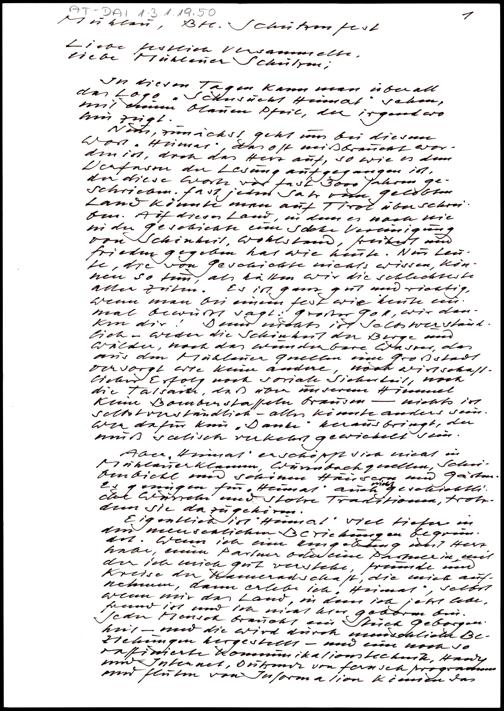 AT-DAI 1.3.1.19.50
1
Mühlau, Btl. Schützenfest
Liebe festlich Versammelte,
liebe Mühlauer Schützen;
In diesen Tagen kann man überall
das Logo „Sehnsucht Heimat" sehen,
mit einem blauen Pfeil, der irgendwo
hin zeigt.
Nun, zunächst geht uns bei diesem
Wort „Heimat", das oft mißbraucht wor-
den ist, doch das Herz auf, so wie es dem
Verfasser der Lesung aufgegangen ist,
der diese Worte vor fast 3000 Jahren ge-
schrieben. Fast jeden Satz vom gelobten
Land könnte man auf Tirol überschrei-
ben. Auf dieses Land, in dem es noch nie
in der Geschichte eine solche Vereinigung
von Schönheit, Wohlstand, Freiheit und
Frieden gegeben hat wie heute. Nur Leu-
te, die von Geschichte nichts wissen, kön-
nen so tun, als hätten wir die schlechteste
aller Zeiten. Es ist ganz gut und richtig,
wenn man bei einem Fest wie heute ein-
mal bewußt sagt: Großer Gott, wir dan-
ken dir! Denn nichts ist selbstverständ-
lich – weder die Schönheit der Berge und
Wälder, noch das wunderbare Wasser, das
aus den Mühlauer Quellen eine Großstadt
versorgt wie keine andere, noch wirtschaft-
licher Erfolg noch soziale Sicherheit, noch
die Tatsache, daß über unserem Himmel
keine Bomberstaffeln brausen – nichts ist
selbstverständlich – alles könnte anders sein.
Wer dafür kein „Danke" herausbringt, der
muß seelisch verkehrt gewickelt sein.
Aber „Heimat" erschöpft sich nicht in
Mühlauerklamm, Wurmbachquellen, Schei-
benbichl und schönen Häusern und Gärten.
Es genügen für „Heimat" auch nicht geschichtli-
che Wurzeln und stolze Traditionen, trotz-
dem sie dazugehören.
Eigentlich ist „Heimat" viel tiefer in
den menschlichen Beziehungen begrün-
det. Wenn ich eine Umgebung mit Herz
habe, einen Partner oder eine Partnerin, mit
der ich mich gut verstehe, Freunde und
Kreise der Kameradschaft, die mich auf-
nehmen – dann erlebe ich „Heimat", selbst
wenn mir das Land, in dem ich jetzt lebe,
fremd ist und ich nicht hier geboren bin.
Jeder Mensch braucht ein Stück Geborgen-
heit – und die wird durch menschliche Be-
ziehungen hergestellt – und eine noch so
raffinierte Kommunikationstechnik, Handy
und Internet, Dutzende von Fernsehprogrammen
und Fluten von Information können das